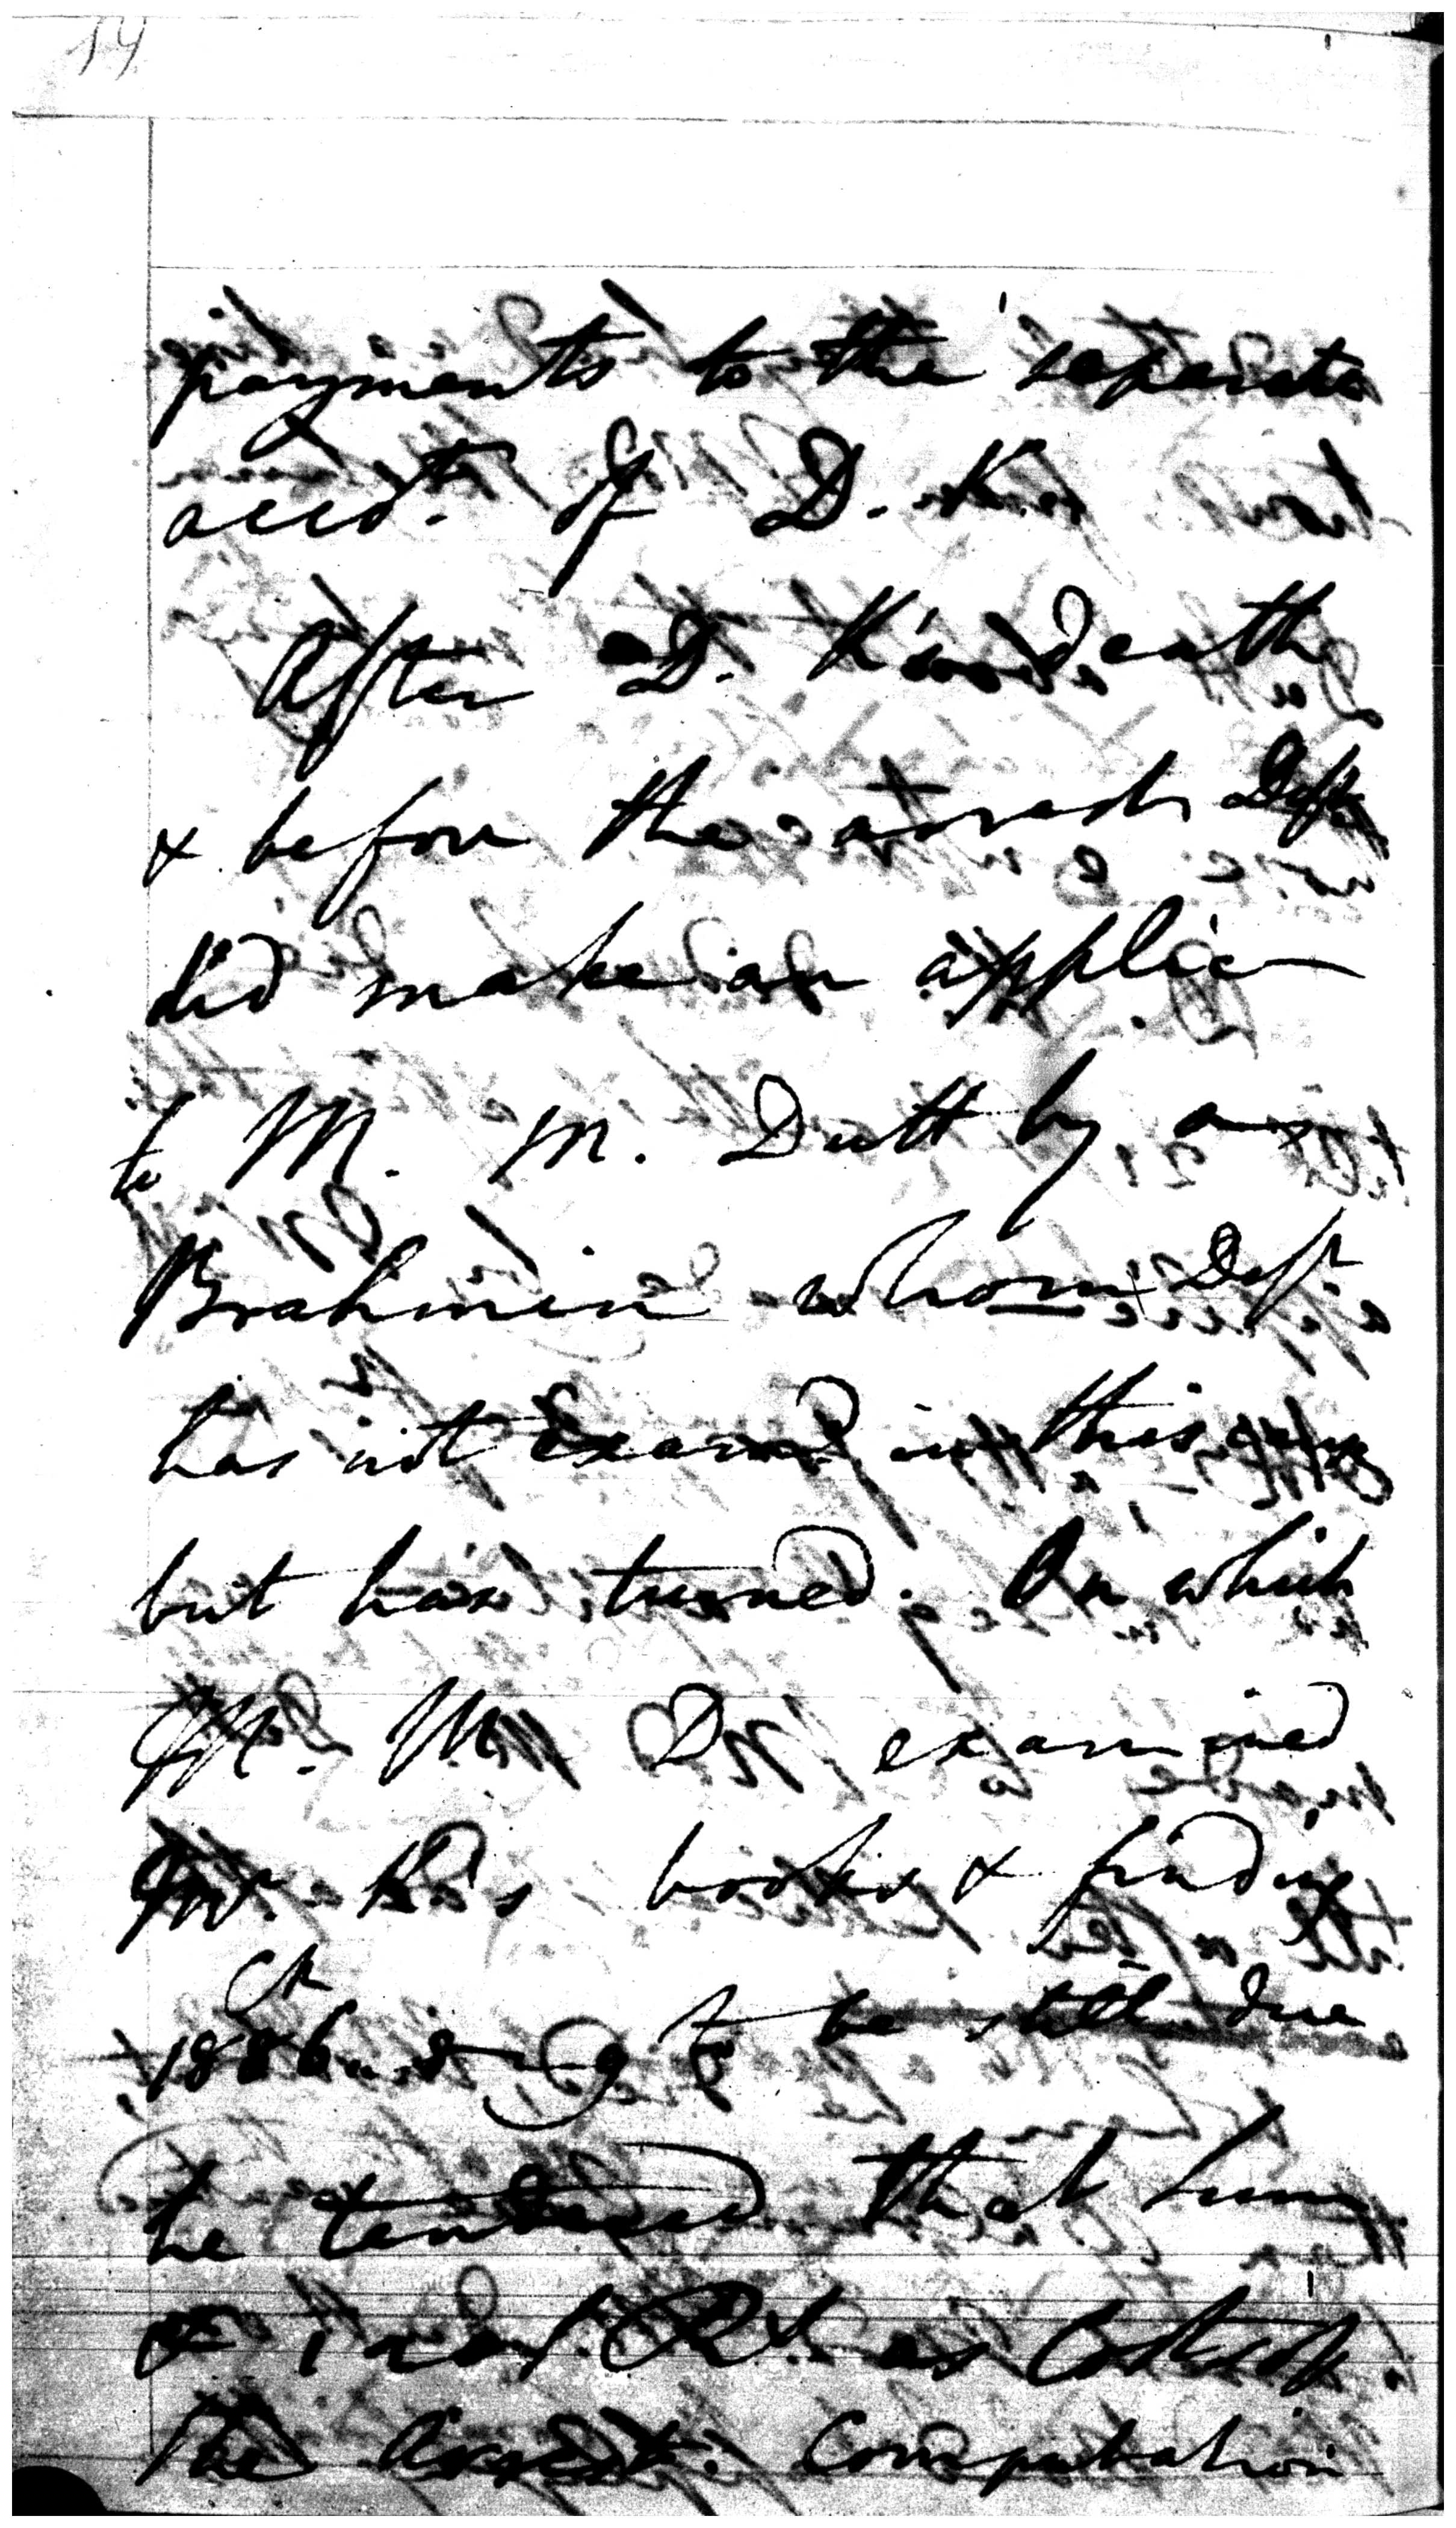 14
payments to the separate
acct. of D. K.
After D. K's death
& before the arrest Deft
did make an applicn
to M. M. Dutt by a
Brahmin whom Deft
has not examd in this
but has turned. On which
M. M. D. examined
books & finding
to be still due
he tendered that sum
& as Costs of
the Arrest. Computation